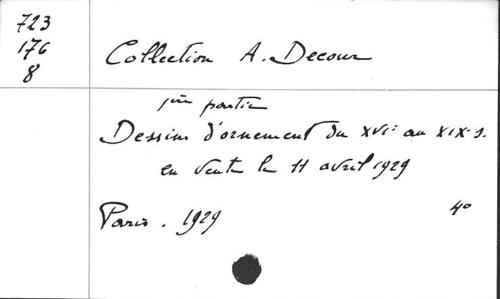 723
176
8
Collection A. Decour
1ère partie
Dessins d'ornement du XVIe au XIXe s.
en vente le 11 avril 1929
Paris. 1929
4o